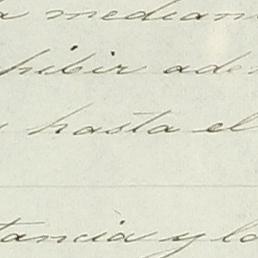 a median
hibir ade
hasta el
tancia y lo